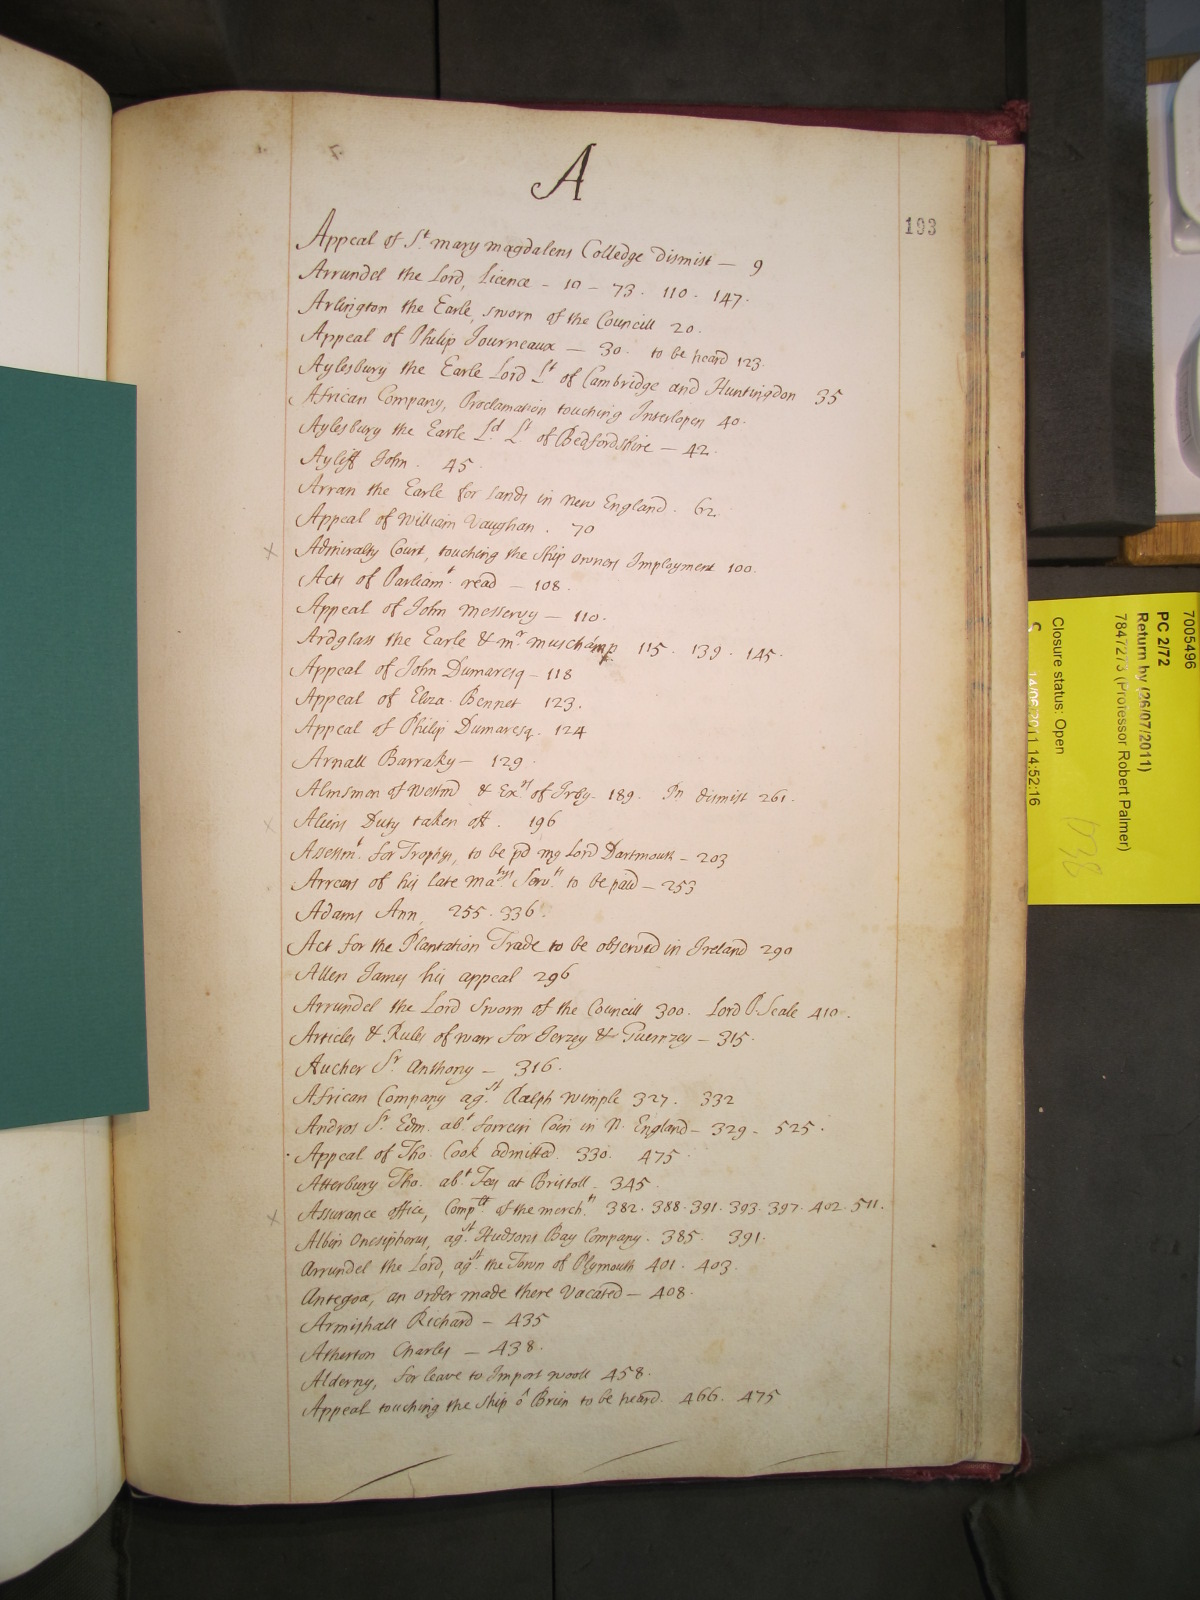 A
193
Appeal of St. mary magdalens Colledge dismist — 9
Arrundel the Lord, Licence - 10 - 73. 110. 147.
Arlington the Earle, sworn of the Councill 20.
Appeal of Philip Journeaux — 30. to be heard 123.
Aylesbury the Earle Lord Lt of Cambridge and Huntingdon 35
African Company, Proclamation touching Interlopers 40.
Aylesbury the Earle Ld. Lt of Bedfordshire — 42.
Ayliff John. 45.
Arran the Earle for lands in new England. 62
Appeal of William Vaughan. 70
Admiralty Court, touching the Ship owners Imployment 100.
Acts of Parliamt. read — 108.
Appeal of John Messervy — 110.
Ardglass the Earle & mr. muschamp 115. 139. 145.
Appeal of John Dumaresq — 118
Appeal of Eliza. Bennet 123.
Appeal of Philip Dumaresq. 124
Arnall Barraky — 129.
Almsmen of & Exrs of Irby - 189. dismist 261.
Aliens Duty taken off. 196
Assessmt. for Trophys, to be pd my Lord Dartmouth — 203
Arrears of his late Matys Servts to be paid — 253
Adams Ann, 255. 336.
Act for the Plantation Trade to be observed in Ireland 290
Allen James his appeal 296
Arrundel the Lord Sworn of the Councill 300. Lord P. Seale 410.
Articles & Rules of warr for Jerzey & Guernzey — 315.
Aucher Sr. Anthony — 316.
African Company agst. Ralph wimple 327. 332
Andros Sr. Edm. abt forrein Coin in N. England — 329 - 525.
Appeal of Tho. Cook admitted. 330. 475.
Atterbury Tho. abt Fees at Bristoll. 345.
Assurance office, Complt of the mercht. 382. 388. 391. 393. 397. 402. 511.
Albin Onesiphorus, agst. Hudsons Bay Company. 385. 391.
Arrundel the Lord, agst. the Town of Plymouth 401. 403.
Antegoa, an order made there vacated — 408.
Armishall Richard — 435
Atherton Charles — 438.
Alderny, for leave to Import wooll 458.
Appeal touching the Ship ô Brien to be heard. 466. 475
7005496
PC 2/72
Return by (26/07/2011)
7847273 (Professor Robert Palmer)
Closure status: Open
14/06/2011 14:52:16